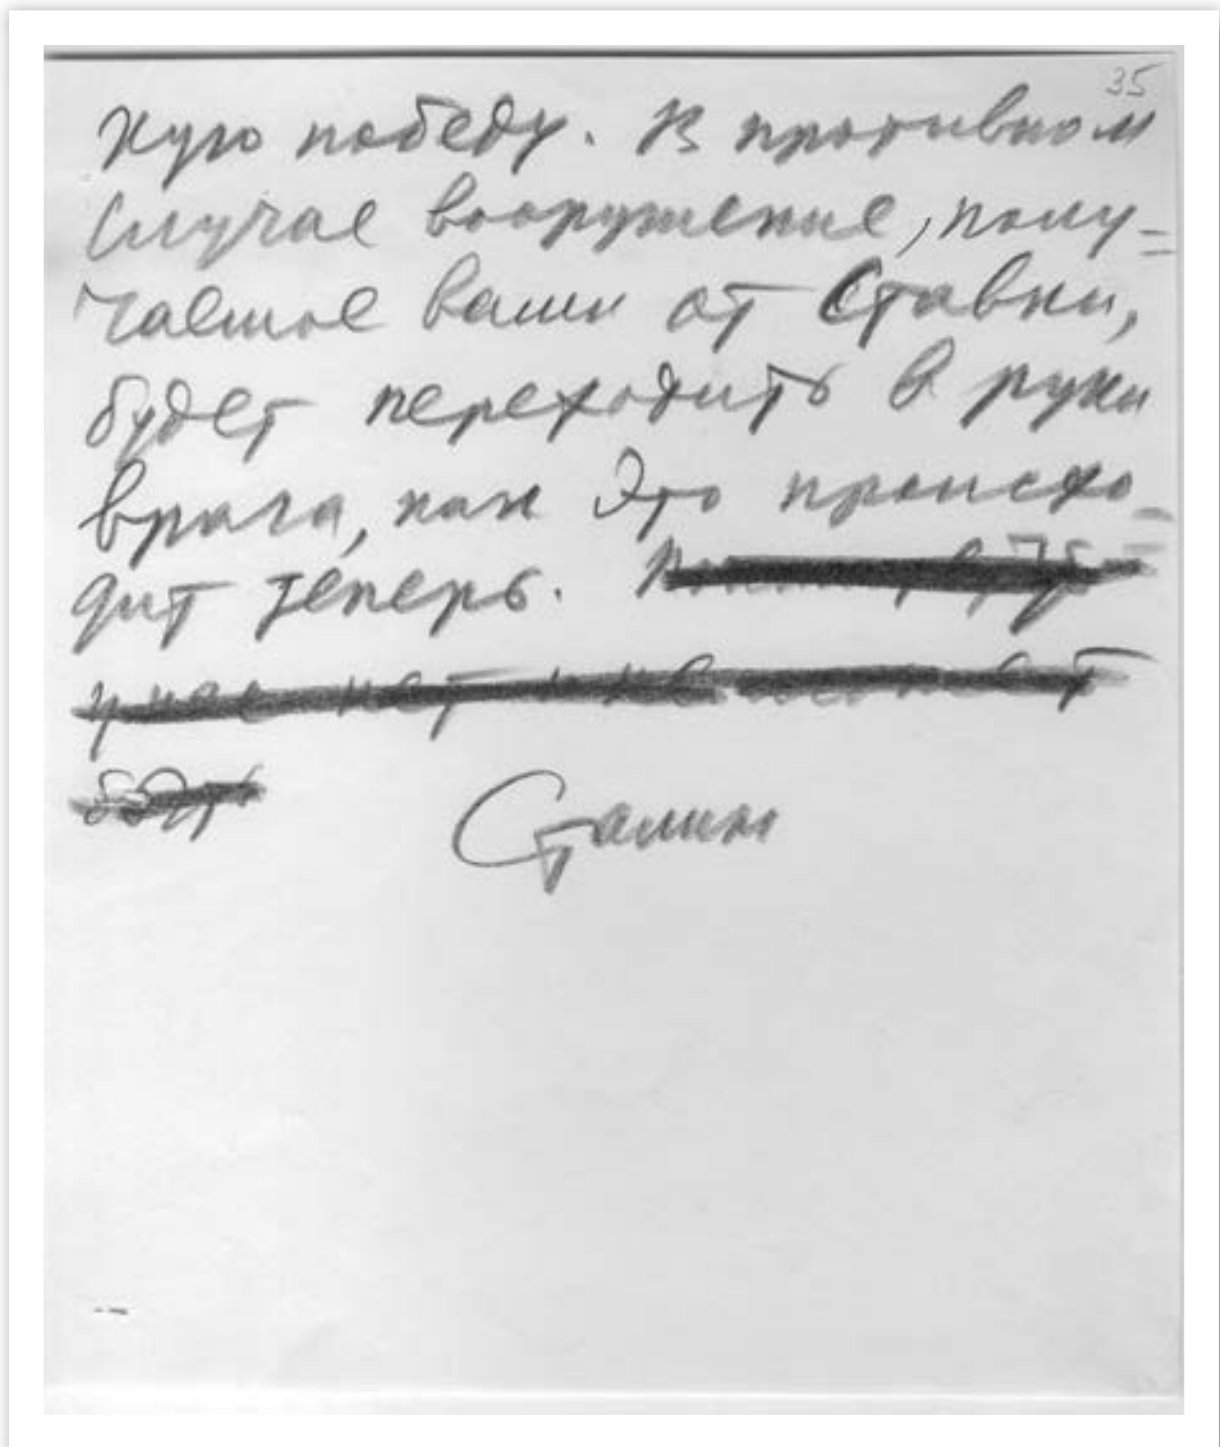 35
кую победу. В противном
случае вооружение, полу=
чаемое вами от Ставки,
будет переходить в руки
врага, как это происхо-
дит теперь.
у нас нет и не
Сталин